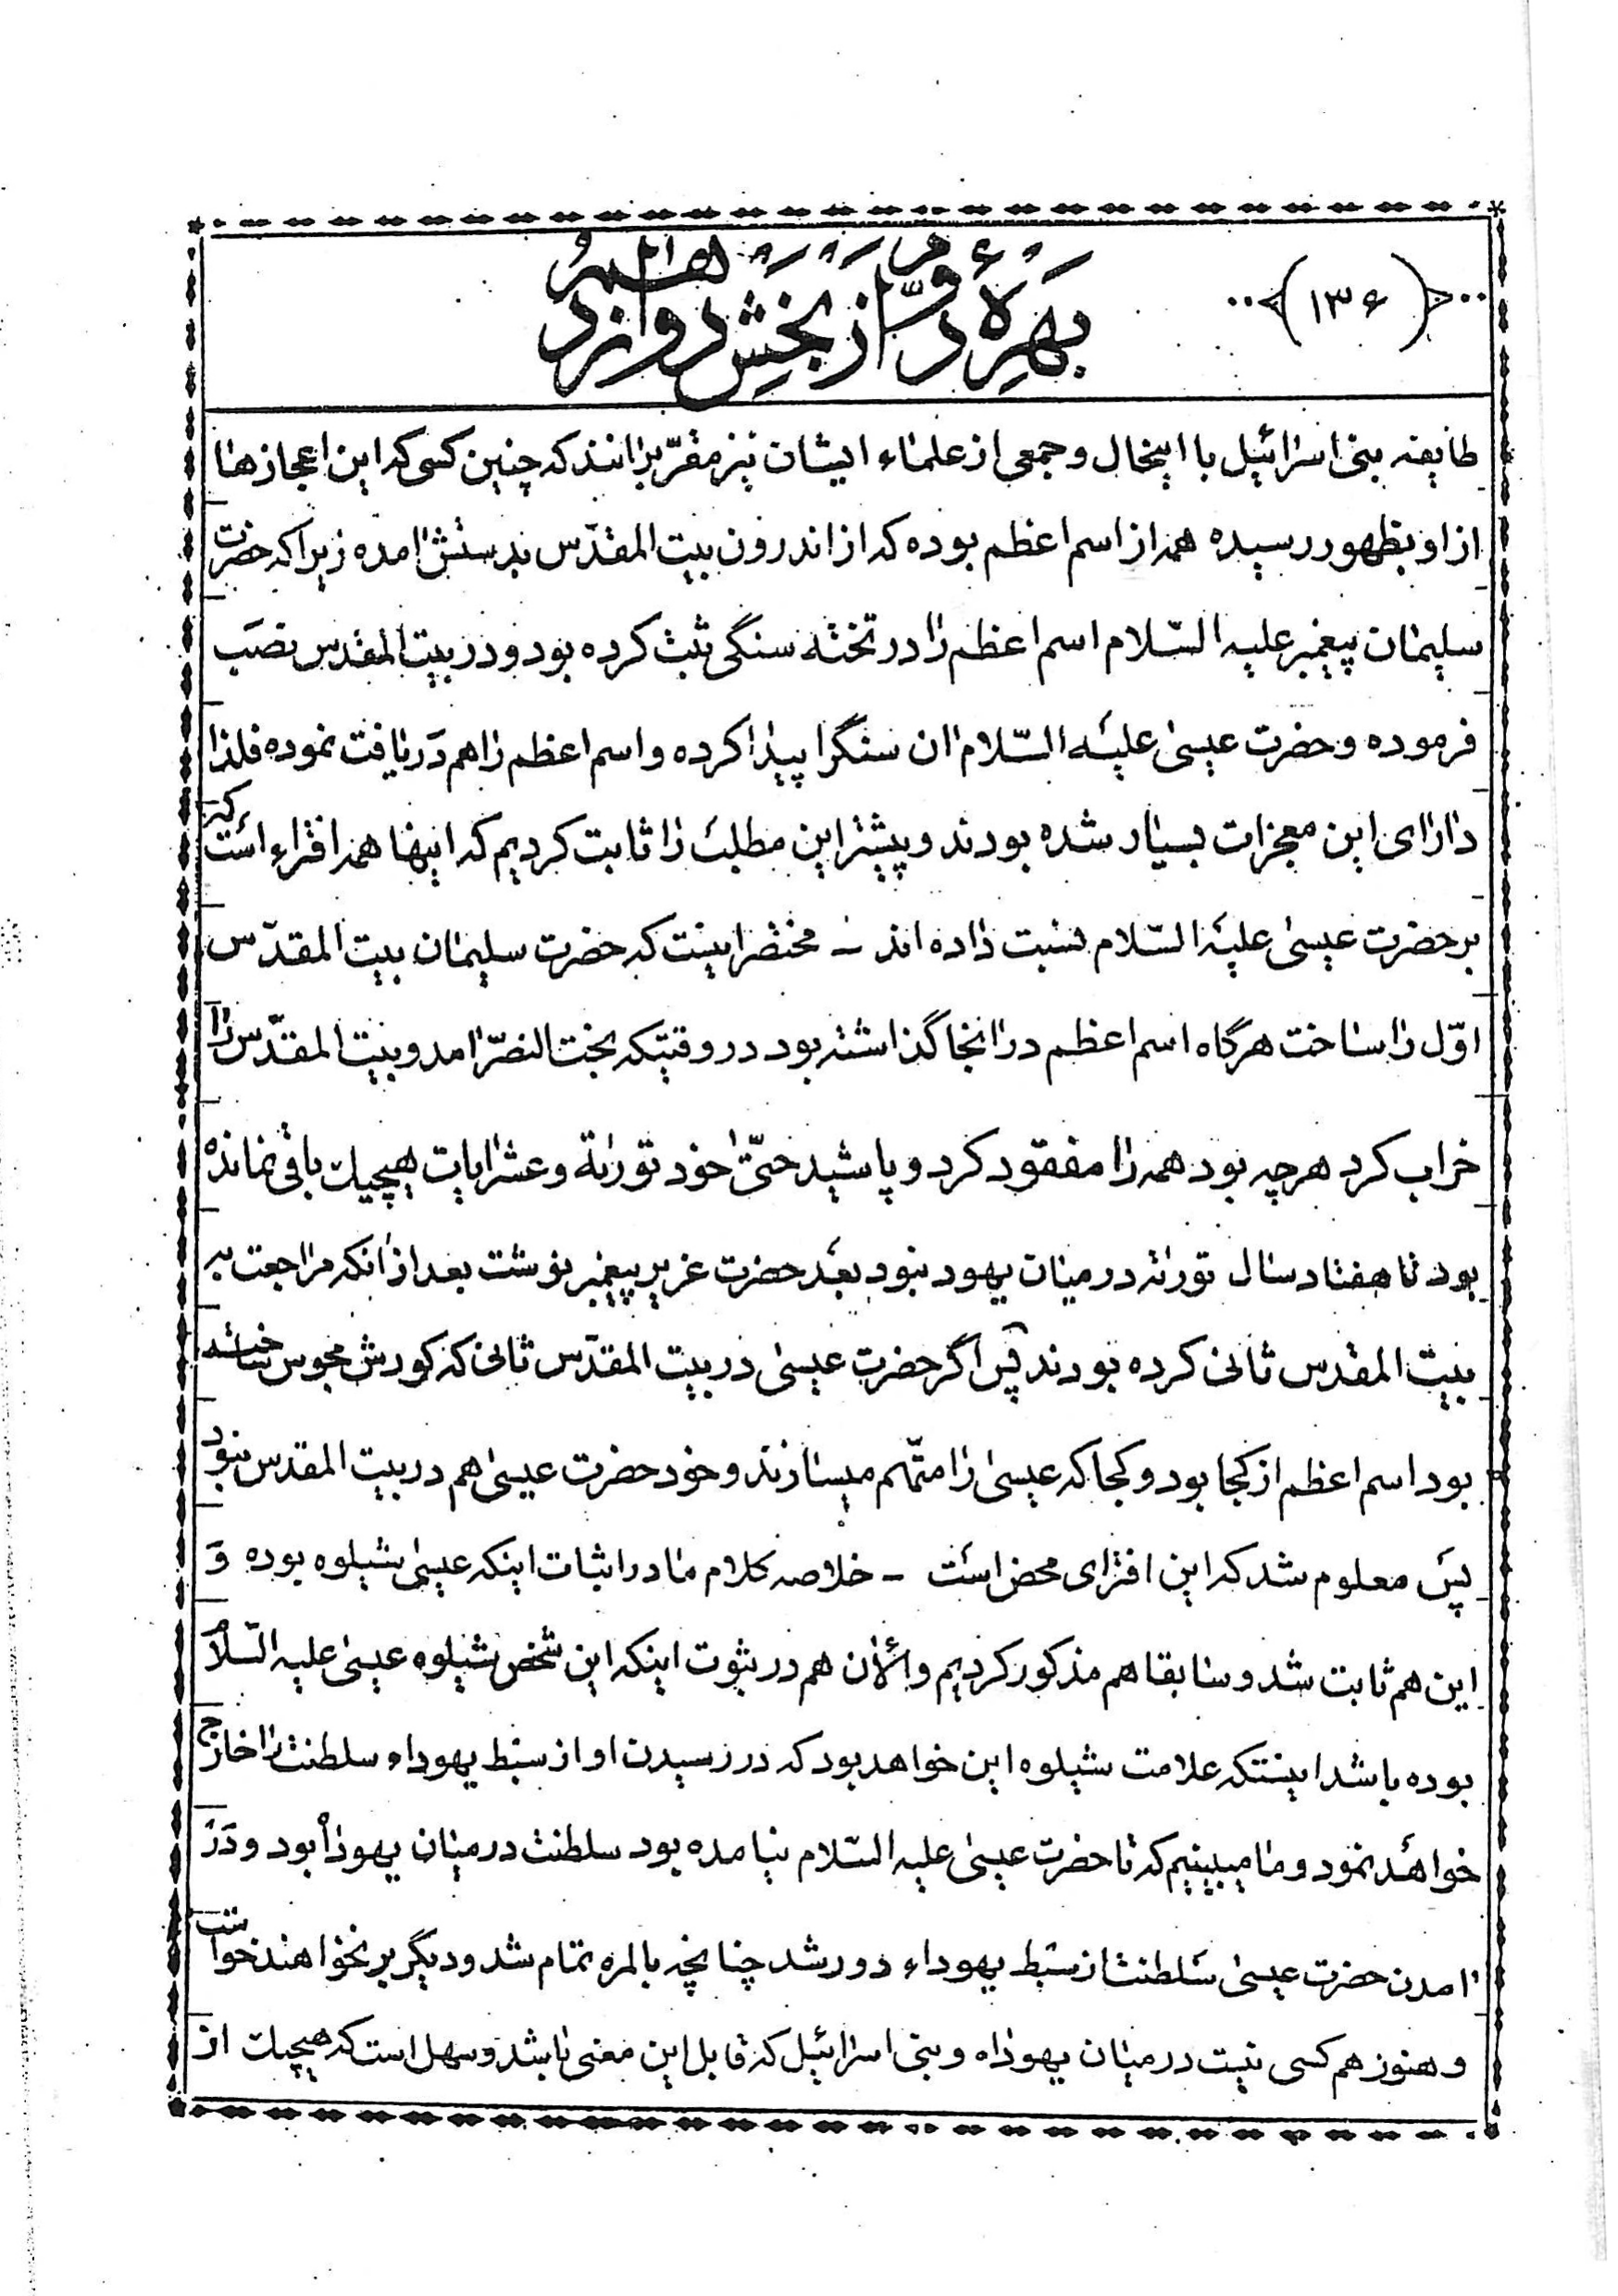 (۱۳۶)
بهرهٔ دوّم از بخش دوازدهم
طایفه بنی اسرائیل با اینحال و جمعی از علماء ایشان نیز مقرّ براننذ که چنین کسی که این اعجازها
از او بظهور رسیده همه از اسم اعظم بوده که از اندرون بیت المقدّس بدستش امده زیرا که حضرت
سلیمان پیغمبر علیه السّلام اسم اعظم را در تخته سنگی ثبت کرده بود و در بیت المقدس نصب
فرموده و حضرت عیسیٰ علیه السّلام ان سنگرا پیدا کرده و اسم اعظم را هم دریافت نموده فلذا
دارای این معجزات بسیار شده بودند و پیشتر این مطلب را ثابت کردیم که اینها همه افتراء است که
بر حضرت عیسیٰ علیه السّلام نسبت داده اند – مختصر اینست که حضرت سلیمان بیت المقدّس
اوّل را ساخت هرگاه اسم اعظم در انجا گذاشته بود در وقتیکه بخت النصّر امد و بیت المقدّس را
خراب کرد هرچه بود همه را مفقود کرد و پاشید حتّیٰ خود توریة و عشر ایات هیچیک باقی نمانده
بود تا هفتاد سال توریة در میان یهود نبود بعد حضرت عزیر پیغمبر نوشت بعد از انکه مراجعت به
بیت المقدس ثانی کرده بودند پس اگر حضرت عیسیٰ در بیت المقدّس ثانی که کورش مجوس ساخته
بود اسم اعظم از کجا بود و کجا که عیسیٰ را متّهم میسازند و خود حضرت عیسیٰ هم در بیت المقدس نبود
پس معلوم شد که این افترای محض است – خلاصه کلام ما در اثبات اینکه عیسیٰ شیلوه بوده و
این هم ثابت شد و سابقا هم مذکور کردیم و الأن هم در ثبوت اینکه این شخص شیلوه عیسیٰ علیه السّلام
بوده باشد اینستکه علامت شیلوه این خواهد بود که در رسیدن او از سبط یهوداء سلطنت را خارج
خواهد نمود و ما میبینیم که تا حضرت عیسیٰ علیه السّلام نیامده بود سلطنت در میان یهودا بود و در
امدن حضرت عیسیٰ سلطنت از سبط یهوداء دور شد چنانچه بالمره تمام شد و دیگر بر نخواهند خواست
و هنوز هم کسی نیست در میان یهوداه و بنی اسرائیل که قابل این معنی باشد و سهل است که هیچیک از